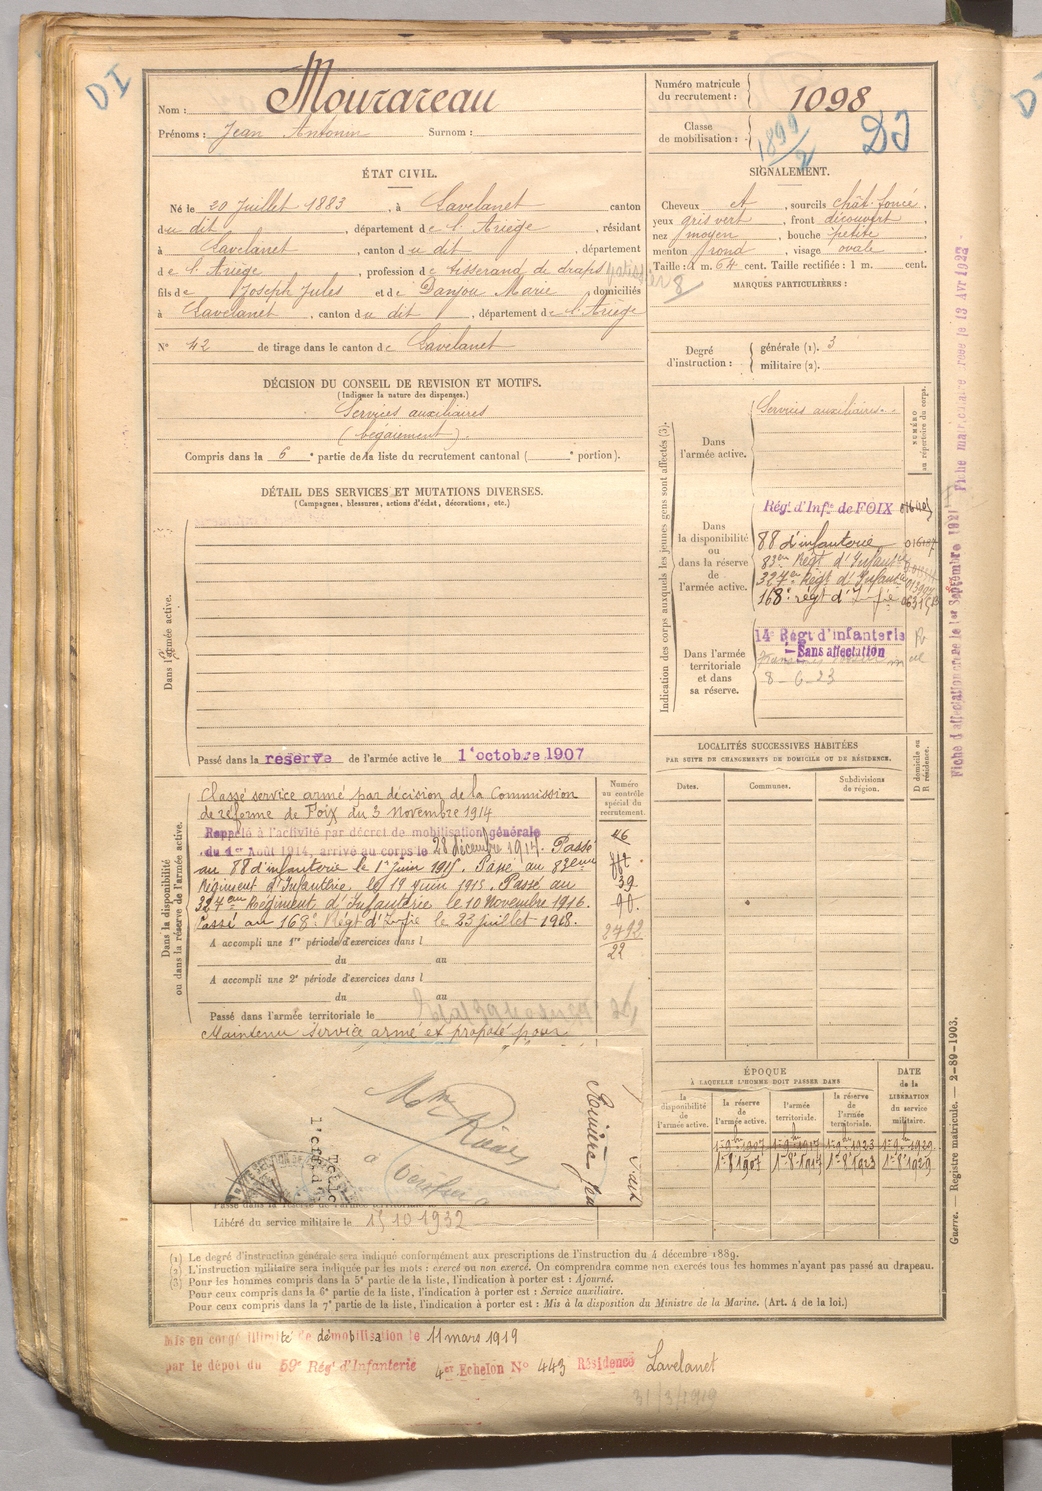 DI
Nom : Mourareau
Prénoms : Jean Antonin Surnom :
Numéro matricule du recrutement : 1098
Classe de mobilisation : 1899/2 DI
ÉTAT CIVIL.
Né le 20 Juillet 1883, à Lavelanet canton
du dit, département de l'Ariège, résidant
à Lavelanet, canton du dit, département
de l'Ariège, profession de tisserand de draps
fils de Joseph Jules et de Danjou Marie, domiciliés
à Lavelanet, canton du dit, département de l'Ariège
N° 42 de tirage dans le canton de Lavelanet
SIGNALEMENT.
Cheveux et, sourcils chât. foncé,
yeux gris vert, front découvert
nez moyen, bouche petite,
menton rond, visage ovale
Taille : 1 m. 64 cent. Taille rectifiée : 1 m. cent.
8
MARQUES PARTICULIÈRES :
Degré d'instruction : générale (1). 3
militaire (2).
DÉCISION DU CONSEIL DE REVISION ET MOTIFS.
(Indiquer la nature des dispenses.)
Services auxiliaires
(bégaiement).
Compris dans la 6e partie de la liste du recrutement cantonal ( e portion).
DÉTAIL DES SERVICES ET MUTATIONS DIVERSES.
(Campagnes, blessures, actions d'éclat, décorations, etc.)
Dans l'armée active.
Passé dans la réserve de l'armée active le 1er octobre 1907
Indication des corps auxquels les jeunes gens sont affectés (3).
NUMÉRO au répertoire du corps.
Dans l'armée active.
Services auxiliaires.
Dans la disponibilité ou dans la réserve de l'armée active.
Régt d'Infie de FOIX
88 d'infanterie
83em Régt d'Infanterie
327em Régt d'Infanterie
168e régt d'Infie
Dans l'armée territoriale et dans sa réserve.
14e Régt d'infanterie
Sans affectation
8-6-23
Fiche d'affectation créée le 1er Septembre 1921
Fiche matriculaire créée le 13 Avr 1923
LOCALITÉS SUCCESSIVES HABITÉES
PAR SUITE DE CHANGEMENTS DE DOMICILE OU DE RÉSIDENCE.
Dates. Communes. Subdivisions de région. D domicile ou R résidence.
Dans la disponibilité ou dans la réserve de l'armée active.
Numéro au contrôle spécial du recrutement.
Classé service armé par décision de la Commission
de réforme de Foix du 3 novembre 1914
Rappelé à l'activité par décret de mobilisation générale
du 1er Août 1914, arrivé au corps le 28 décembre 1914. Passé
au 88 d'infanterie le 1er juin 1915. Passé au 83ème
Régiment d'Infanterie, le 19 juin 1915. Passé au
327em Régiment d'Infanterie le 10 Novembre 1916.
Passé au 168e Régt d'Infie le 23 juillet 1918.
46
39
90.
3792
22
A accompli une 1re période d'exercices dans l
du au
A accompli une 2e période d'exercices dans l
du au
Passé dans l'armée territoriale le
Maintenu service armé et proposé pour
Rivière
à vérifier
Passé dans la réserve de l'armée territoriale le
Libéré du service militaire le 15 10 1932
ÉPOQUE
À LAQUELLE L'HOMME DOIT PASSER DANS
la disponibilité de l'armée active.
la réserve de l'armée active.
l'armée territoriale.
la réserve de l'armée territoriale.
DATE de la LIBÉRATION du service militaire.
1er 8 1907 1er 8 1917 1er 8 1923 1er 8 1929
Guerre. — Registre matricule. — 2-89-1903.
(1) Le degré d'instruction générale sera indiqué conformément aux prescriptions de l'instruction du 4 décembre 1889.
(2) L'instruction militaire sera indiquée par les mots : exercé ou non exercé. On comprendra comme non exercés tous les hommes n'ayant pas passé au drapeau.
(3) Pour les hommes compris dans la 5e partie de la liste, l'indication à porter est : Ajourné.
Pour ceux compris dans la 6e partie de la liste, l'indication à porter est : Service auxiliaire.
Pour ceux compris dans la 7e partie de la liste, l'indication à porter est : Mis à la disposition du Ministre de la Marine. (Art. 4 de la loi.)
Mis en congé illimité de démobilisation le 11 mars 1919
par le dépôt du 59e Régt d'Infanterie 4er Echelon N° 443 Résidence Lavelanet
31/3/1919